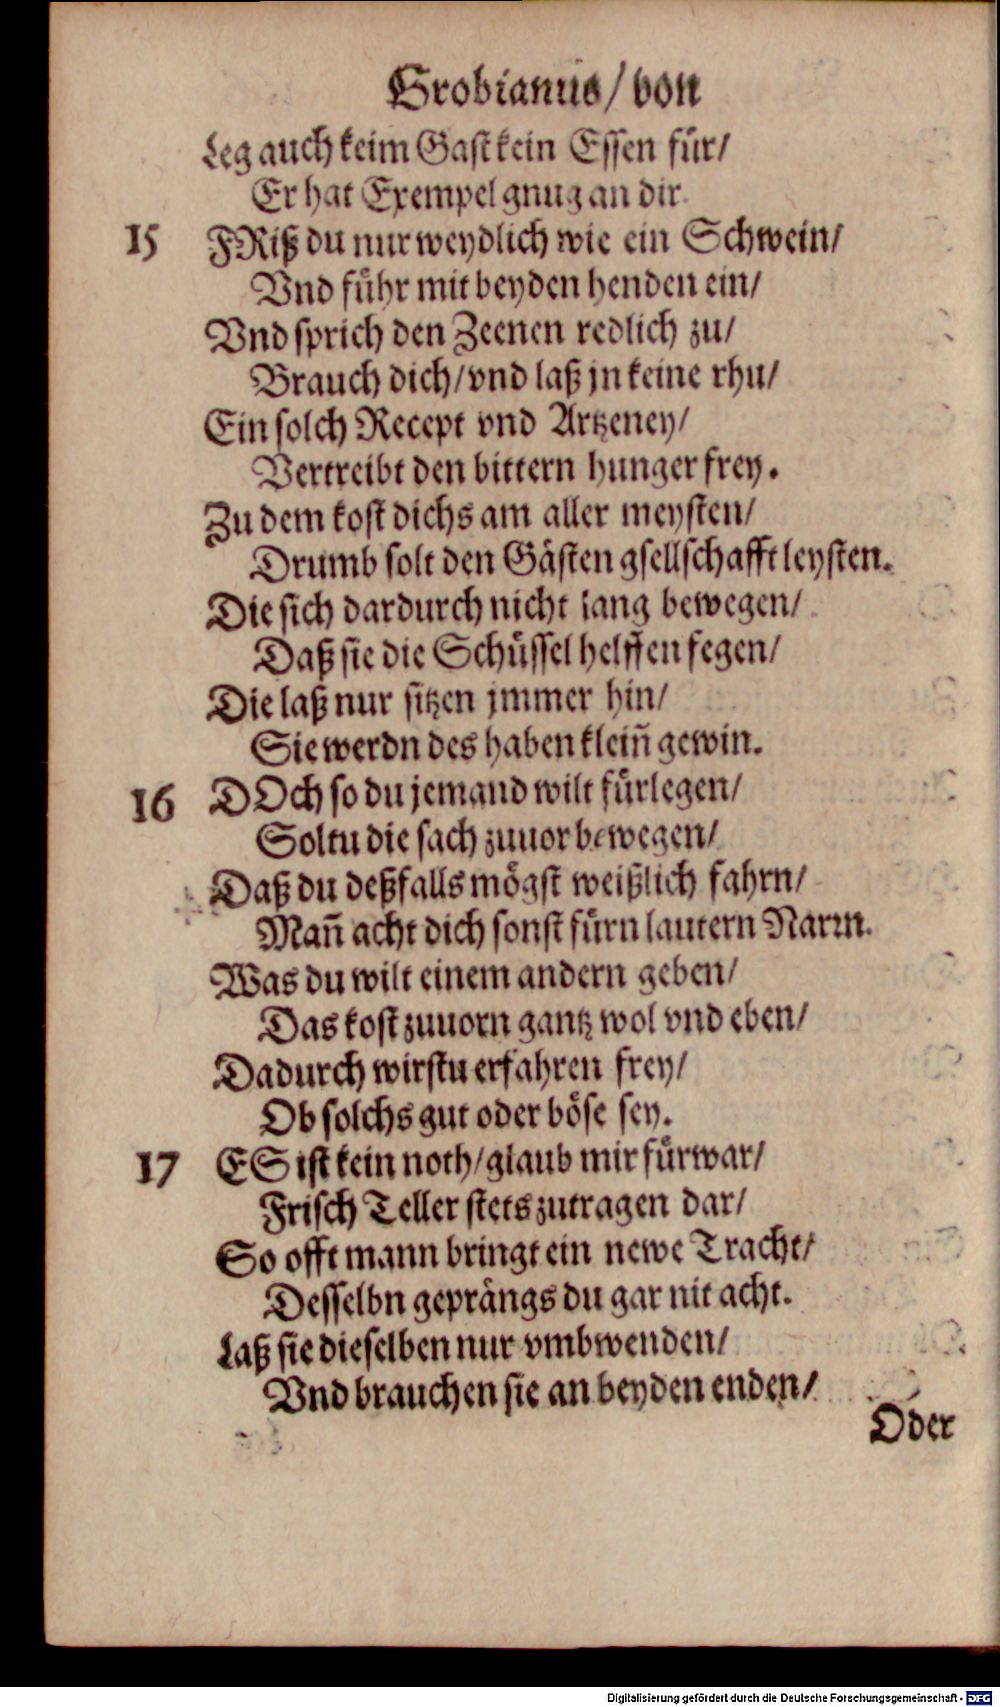 Grobianus/ von
Leg auch keim Gast kein Essen für/
Er hat Exempel gnug an dir.
15 FRiß du nur weydlich wie ein Schwein/
Vnd führ mit beyden henden ein/
Vnd sprich den Zeenen redlich zu/
Brauch dich/ vnd laß jn keine rhu/
Ein solch Recept vnd Artzeney/
Vertreibt den bittern hunger frey.
Zu dem kost dichs am aller meysten/
Drumb solt den Gästen gsellschafft leysten.
Die sich dardurch nicht lang bewegen/
Daß sie die Schüssel helffen fegen/
Die laß nur sitzen jmmer hin/
Sie werdn des haben kleiñ gewin.
16 DOch so du jemand wilt fürlegen/
Soltu die sach zuuor bewegen/
Daß du deßfalls mögst weißlich fahrn/
Mañ acht dich sonst fürn lautern Narrn.
Was du wilt einem andern geben/
Das kost zuuorn gantz wol vnd eben/
Dadurch wirstu erfahren frey/
Ob solchs gut oder böse sey.
17 ES ist kein noth/ glaub mir fürwar/
Frisch Teller stets zutragen dar/
So offt mann bringt ein newe Tracht/
Desselbn geprängs du gar nit acht.
Laß sie dieselben nur vmbwenden/
Vnd brauchen sie an beyden enden/
Oder
Digitalisierung gefördert durch die Deutsche Forschungsgemeinschaft - DFG